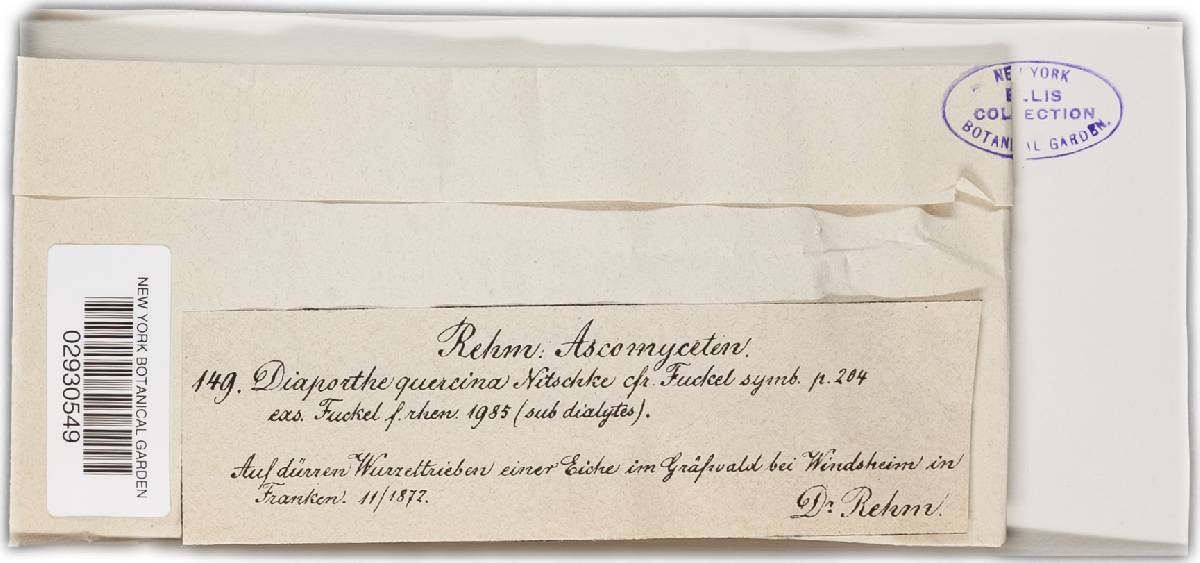 NEW YORK
ELLIS
COLLECTION
BOTANICAL GARDEN.
NEW YORK BOTANICAL GARDEN
02930549
Rehm: Ascomyceten.
149. Diaporthe quercina Nitschke cfr. Fuckel symb. p. 204
exs. Fuckel f. rhen. 1985 (sub dialytes).
Auf dürren Wurzeltrieben einer Eiche im Gräfwald bei Windsheim in
Franken. 11/1872.
Dr Rehm.